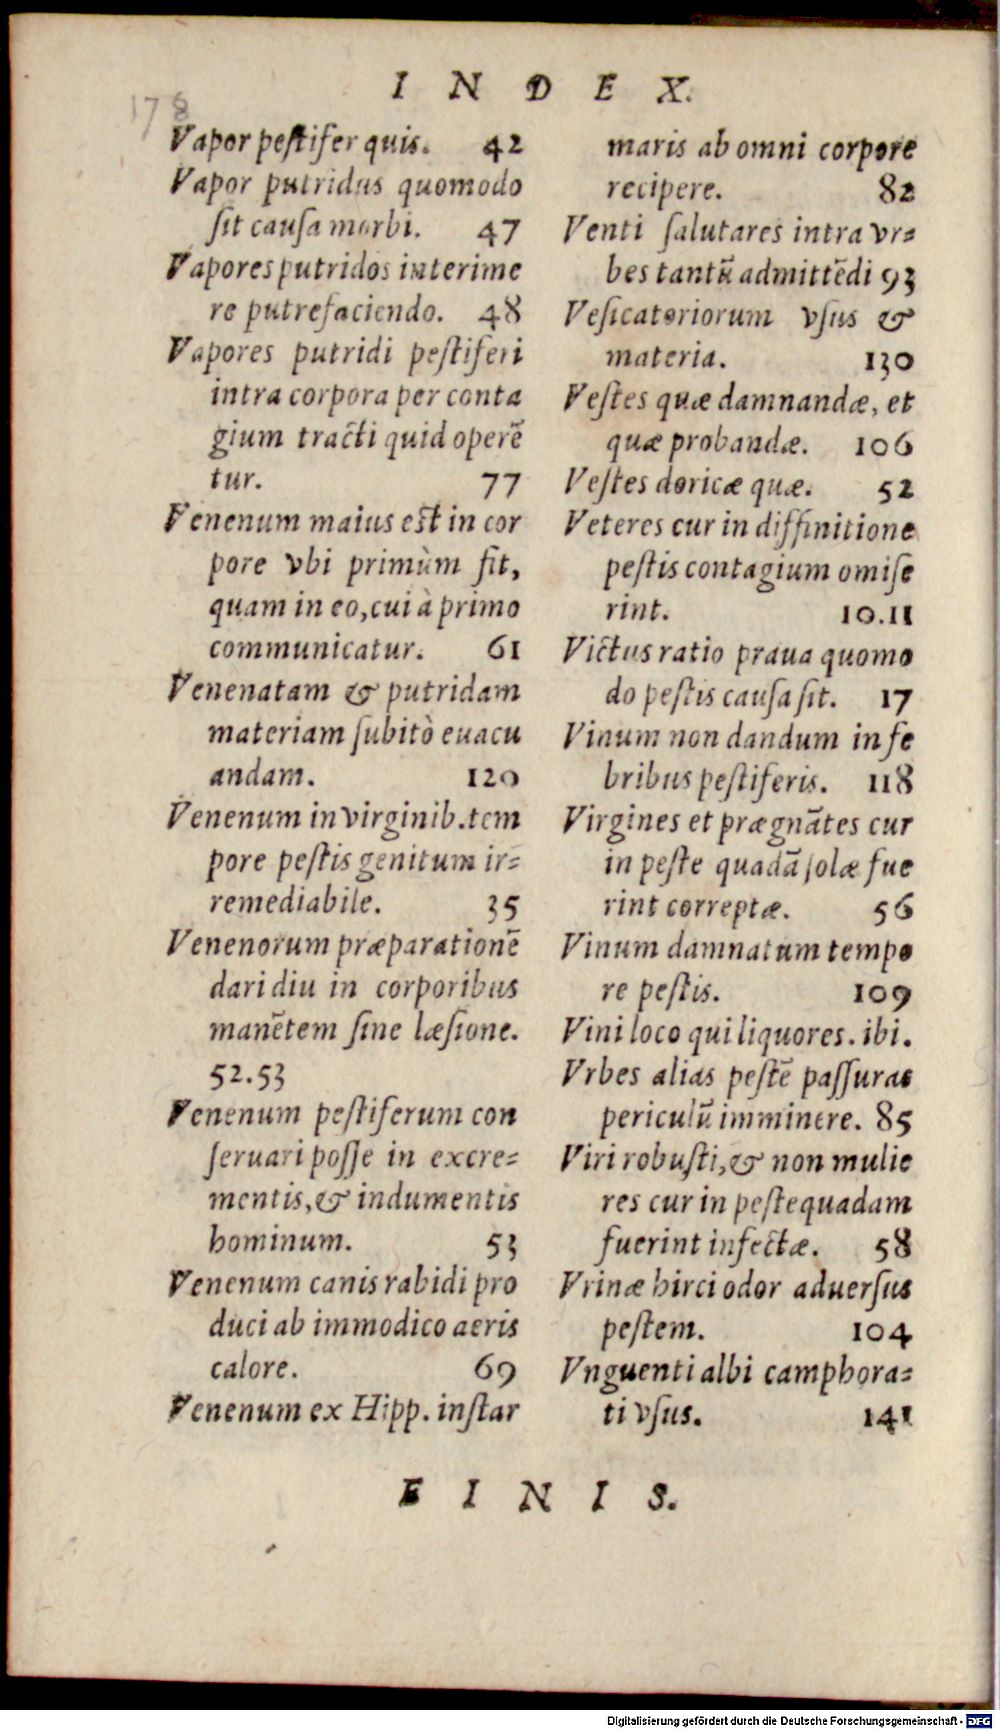 INDEX.
178
Vapor peſtifer quis. 42
Vapor putridus quomodo
ſit cauſa morbi. 47
Vapores putridos interime
re putrefaciendo. 48
Vapores putridi peſtiferi
intra corpora per conta
gium tracti quid operẽ
tur. 77
Venenum maius eſt in cor
pore vbi primùm fit,
quam in eo, cui à primo
communicatur. 61
Venenatam & putridam
materiam ſubitò euacu
andam. 120
Venenum in virginib. tem
pore peſtis genitum ir=
remediabile. 35
Venenorum præparationẽ
dari diu in corporibus
manẽtem ſine læſione.
52.53
Venenum peſtiferum con
ſeruari poſſe in excre=
mentis, & indumentis
hominum. 53
Venenum canis rabidi pro
duci ab immodico aeris
calore. 69
Venenum ex Hipp. inſtar
maris ab omni corpore
recipere. 82
Venti ſalutares intra vr=
bes tantũ admittẽdi 93
Veſicatoriorum vſus &
materia. 130
Veſtes quæ damnandæ, et
quæ probandæ. 106
Veſtes doricæ quæ. 52
Veteres cur in diffinitione
peſtis contagium omiſe
rint. 10.11
Victus ratio praua quomo
do peſtis cauſa ſit. 17
Vinum non dandum in fe
bribus peſtiferis. 118
Virgines et prægnãtes cur
in peſte quadã ſolæ fue
rint correptæ. 56
Vinum damnatum tempo
re peſtis. 109
Vini loco qui liquores. ibi.
Vrbes alias peſtẽ paſſuras
periculũ imminere. 85
Viri robuſti, & non mulie
res cur in peſte quadam
fuerint infectæ. 58
Vrinæ hirci odor aduerſus
peſtem. 104
Vnguenti albi camphora=
ti vſus. 141
FINIS.
Digitalisierung gefördert durch die Deutsche Forschungsgemeinschaft - DFG